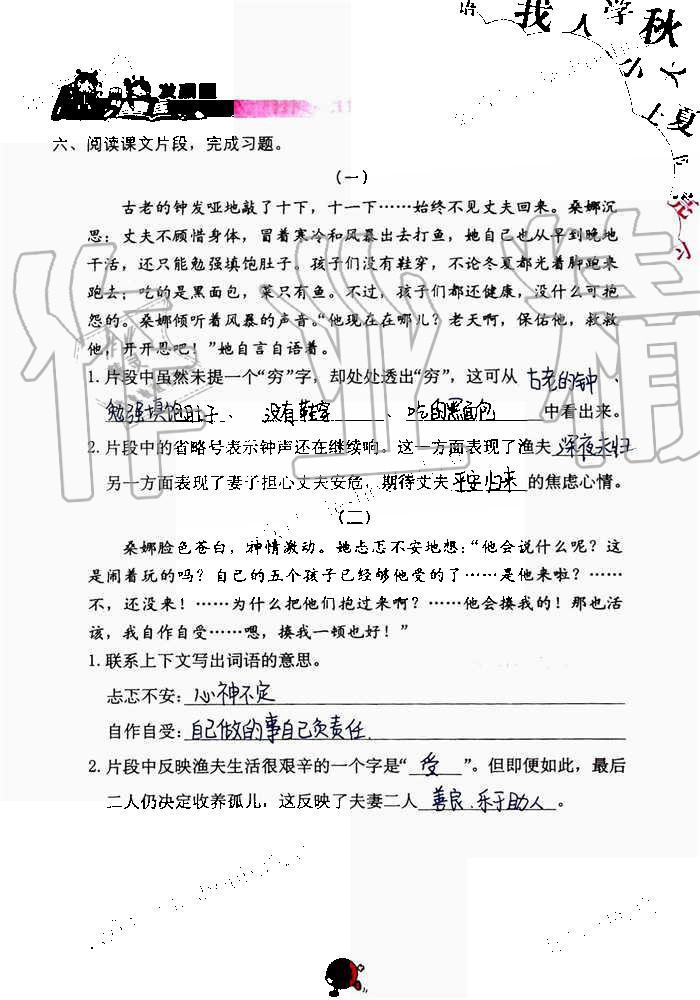 语 我 人 学 秋
小 文
上 夏
发展题
六、阅读课文片段，完成习题。
（一）
古老的钟发哑地敲了十下，十一下……始终不见丈夫回来。桑娜沉
思：丈夫不顾惜身体，冒着寒冷和风暴出去打鱼，她自己也从早到晚地
干活，还只能勉强填饱肚子。孩子们没有鞋穿，不论冬夏都光着脚跑来
跑去；吃的是黑面包，菜只有鱼。不过，孩子们都还健康，没什么可抱
怨的。桑娜倾听着风暴的声音。“他现在在哪儿？老天啊，保佑他，救救
他，开开恩吧！”她自言自语着。
1. 片段中虽然未提一个“穷”字，却处处透出“穷”，这可从 古老的钟 、
勉强填饱肚子 、 没有鞋穿 、 吃的黑面包 中看出来。
2. 片段中的省略号表示钟声还在继续响。这一方面表现了渔夫 深夜未归
另一方面表现了妻子担心丈夫安危，期待丈夫 平安归来 的焦虑心情。
（二）
桑娜脸色苍白，神情激动。她忐忑不安地想：“他会说什么呢？这
是闹着玩的吗？自己的五个孩子已经够他受的了……是他来啦？……
不，还没来！……为什么把他们抱过来啊？……他会揍我的！那也活
该，我自作自受……嗯，揍我一顿也好！”
1. 联系上下文写出词语的意思。
忐忑不安： 心神不定
自作自受： 自己做的事自己负责任.
2. 片段中反映渔夫生活很艰辛的一个字是“ 受 ”。但即便如此，最后
二人仍决定收养孤儿，这反映了夫妻二人 善良、乐于助人 。
作业精